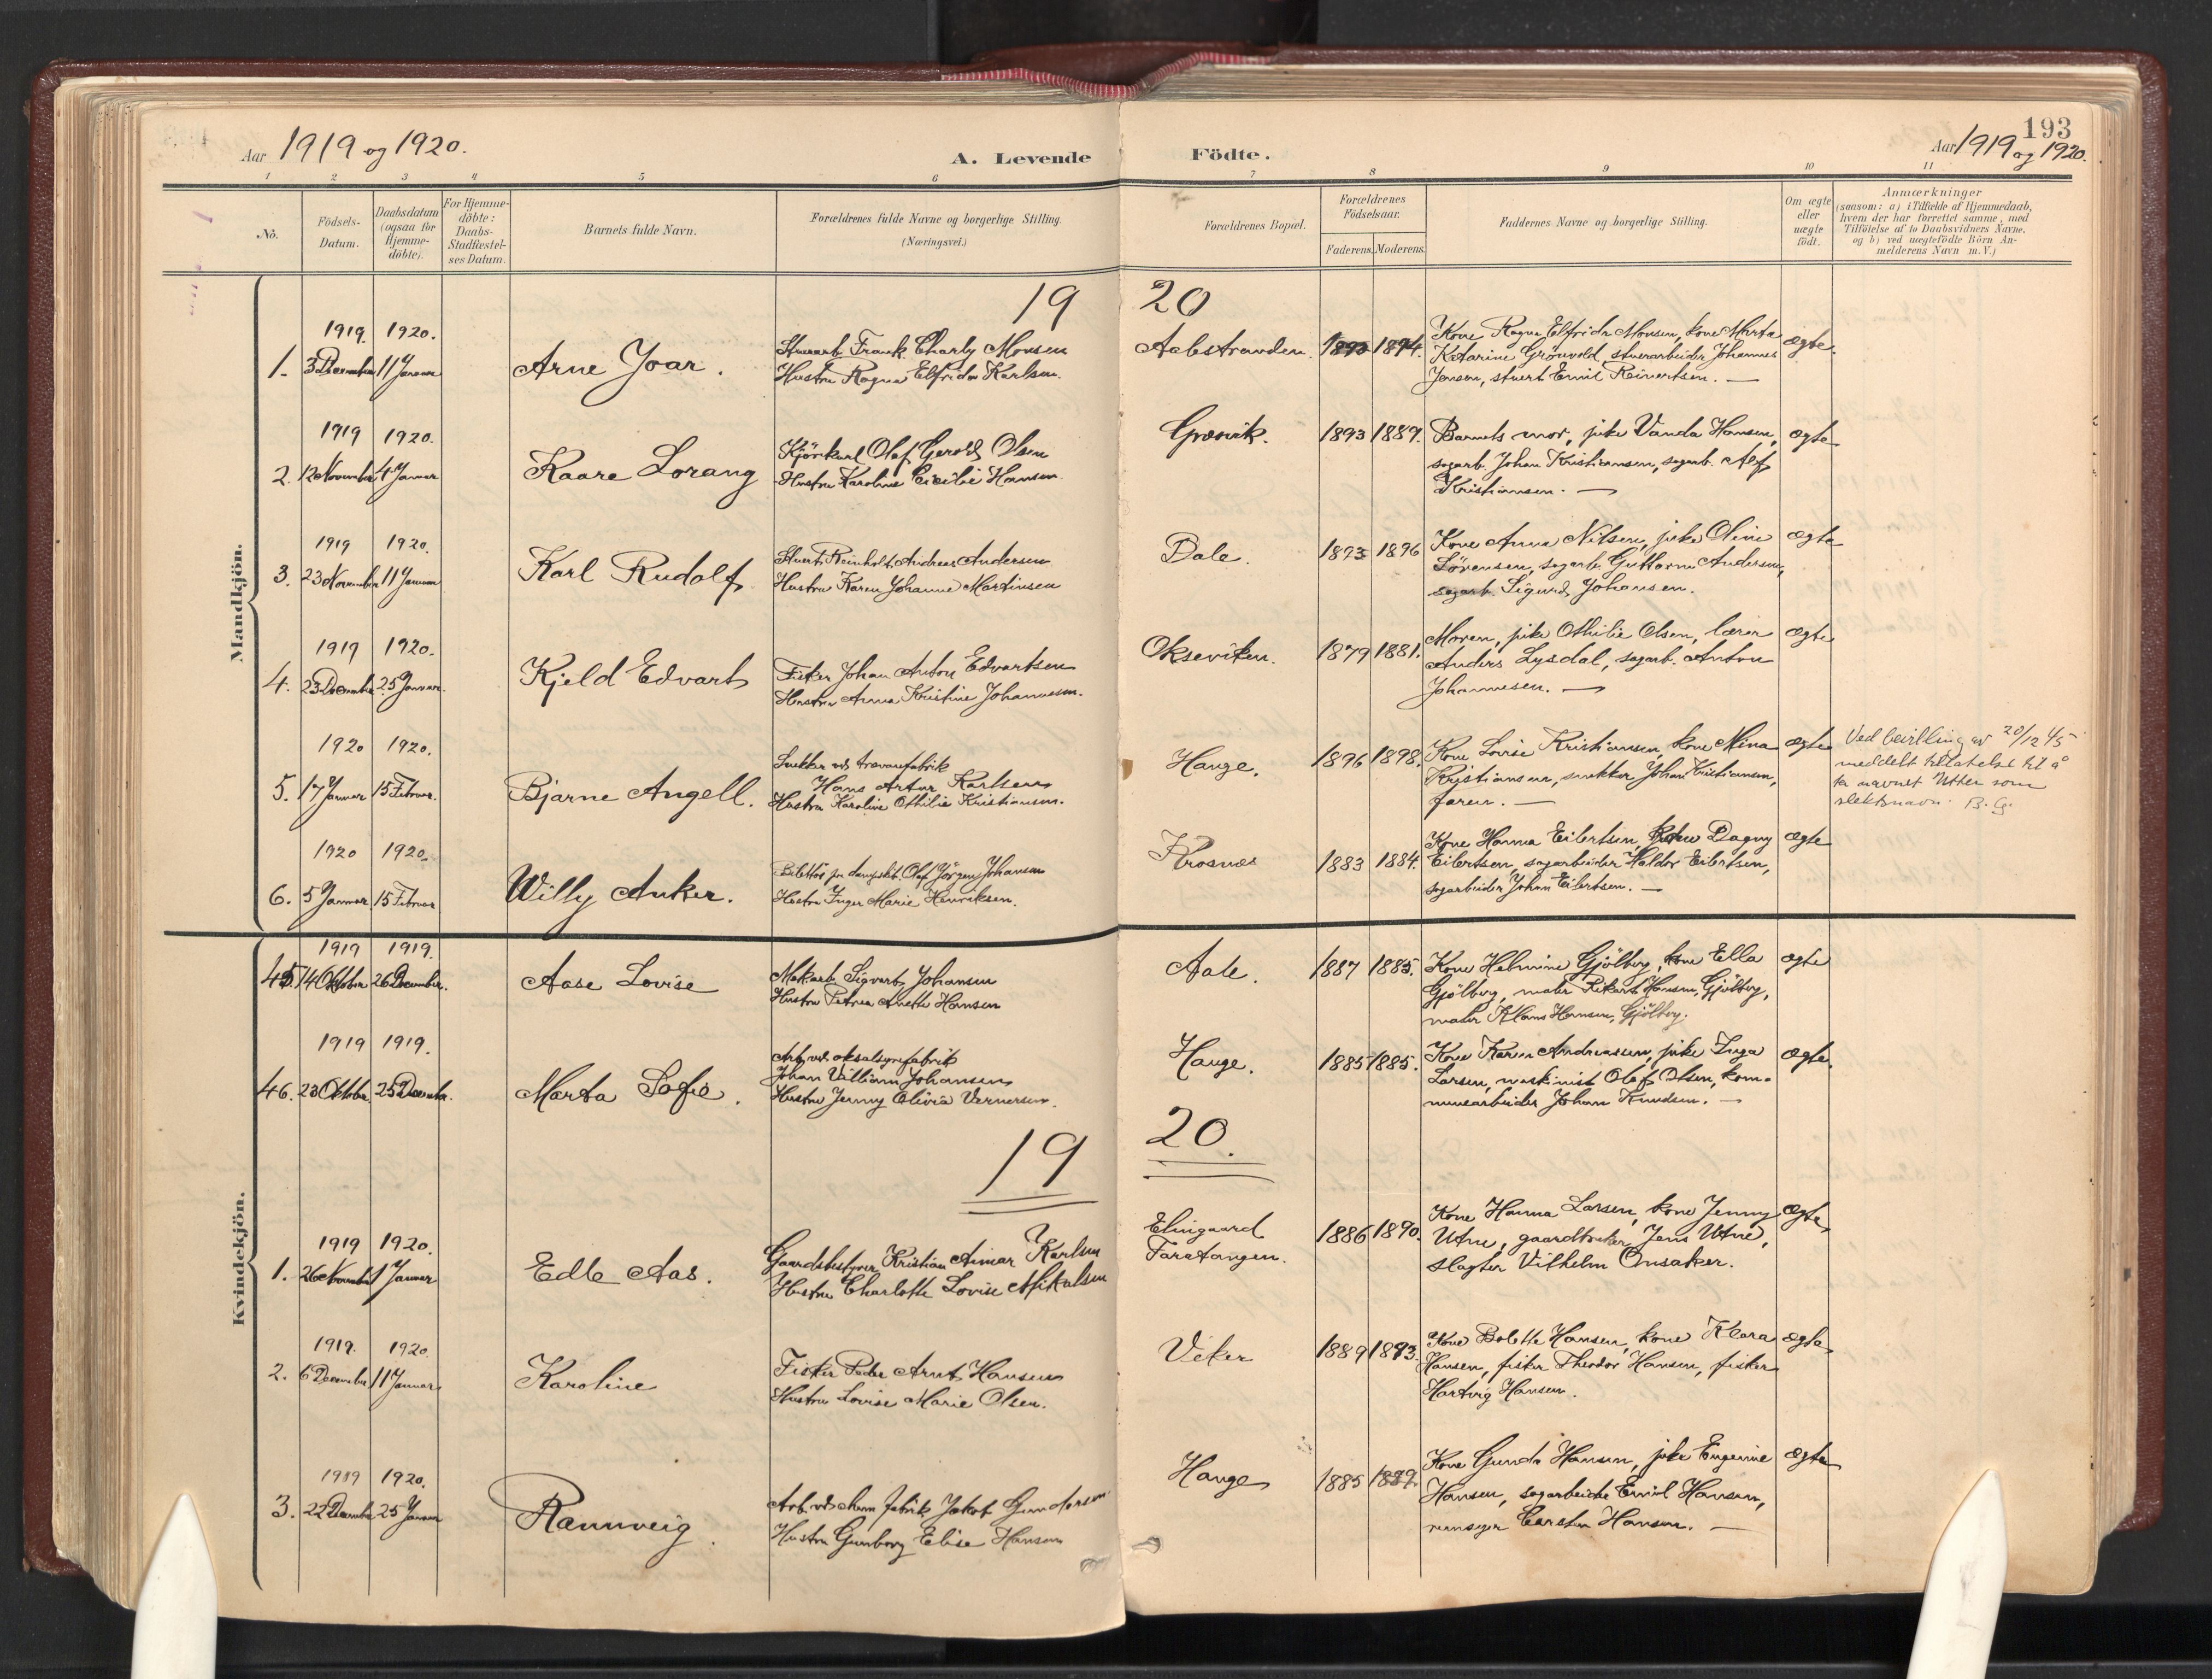 193
Aar 1919 og 1920.
A. Levende Födte.
Aar 1919 og 1920.
1 2 3 4 5 6 7 8 9 10 11
No.
Födsels-
Datum.
Daabsdatum
(ogsaa for
Hjemme-
döbte).
For Hjemme-
döbte:
Daabs-
Stadfæstel-
ses Datum.
Barnets fulde Navn.
Forældrenes fulde Navne og borgerlige Stilling.
(Næringsvei.)
Forældrenes Bopæl.
Forældrenes
Födselsaar.
Faderens. Moderens.
Faddernes Navne og borgerlige Stilling.
Om ægte
eller
uægte
födt.
Anmærkninger
(saasom: a) i Tilfælde af Hjemmedaab,
hvem der har forrettet samme, med
Tilföielse af to Daabsvidners Navne.
og b) ved uægtefödte Börn An-
melderens Navn m. V.)
Mandkjön.
19 20
1919. 1920.
1. 3 December 11 Januar
Arne Joar.
Stuerarb Frank Charly Monsen
Hustru Ragna Elfrida Karlsen.
1894.
Kone Ragna Elfrida Monsen, kone Marta
Katarine Grönvold, stuerarbeider Johannes
Jensen, stuert Emil Reinertsen. —
ægte.
1919 1920.
2. 12 November 4 Januar
Kaare Lorang
Kjörekarl Olaf Gerold Olsen
Hustru Karoline Cecilie Hansen
Græsvik.
1893 1889.
Barnets mor, pike Vanda Hansen,
sagarb. Johan Kristiansen, sagarb. Alf
Kristiansen. —
ægte
1919 1920.
3. 23 November 11 Januar
Karl Rudolf
Stuert Reinholt Andreas Andersen
Hustru Karen Johanne Martinsen
Dale.
1893 1896
Kone Anna Nilsen, pike Oline
Sörensen, sagarb. Guttorm Andersen,
sagarb. Sigurd Johansen.
ægte
1919 1920.
4. 23 December 25 Januar.
Kjeld Edvart
Fisker Johan Anton Edvartsen
Hustru Anna Kristine Johannesen.
Okseviken.
1879 1881.
Moren, pike Othilie Olsen, lærer
Anders Lysdal, sagarb. Anton
Johannesen. —
ægte
1920 1920.
5. 17 Januar 15 Februar.
Bjarne Angell.
Snekker ved trævarefabrik
Hans Artur Karlsen
Hustru Karoline Othilie Kristiansen.
Hauge.
1896 1898.
Kone Lovise Kristiansen, kone Mina
Kristiansen, snekker Johan Kristiansen,
faren. —
ægte
Ved bevilling av 20/12 45
meddelt tillatelse til å
ta navnet Utter som
slektsnavn. B. G.
1920 1920.
6. 5 Januar 15 Februar
Willy Anker.
Billettör paa dampskib. Olaf Jörgen Johansen
Hustru Inger Marie Henriksen.
Krosnæs
1883 1884.
Kone Hanna Eilertsen, kone Dagny
Eilertsen, sagarbeider Haldor Eilertsen,
sagarbeider Johan Eilertsen. —
ægte
Kvindekjön.
1919 1919.
45. 14 Oktober 26 December.
Aase Lovise
Mek.arb. Sigvart Johansen
Hustru Petrea Anette Hansen
Aale.
1887 1885.
Kone Helmine Gjölberg, kone Ella
Gjölberg, maler Rikart Hansen Gjölberg,
maler Klaus Hansen, Gjölberg.
ægte
1919 1919.
46. 23 Oktober 25 December.
Marta Sofie.
Arb. ved oksalsyrefabrik
Johan William Johansen
Hustru Jenny Olivia Vernersen.
Hauge.
1885 1885.
Kone Karen Andreassen, pike Inga
Larsen, maskinist Olaf Olsen, kom-
munearbeider Johan Knudsen. —
ægte.
19 20.
1919 1920.
1. 26 November 1 Januar
Edle Aas.
Gaardsbestyrer Kristian Aimar Karlsen
Hustru Charlotte Lovise Mikalsen
Elingaard
Faratangen.
1886 1890.
Kone Hanna Larsen, kone Jenny
Utne, gaardbruker Jens Utne,
slagter Vilhelm Onsaker.
ægte
1919. 1920.
2. 6 December 11 Januar
Karoline
Fisker Peder Arnt Hansen
Hustru Lovise Marie Olsen.
Viker
1889 1893.
Kone Bolette Hansen, kone Klara
Hansen, fisker Theodor Hansen, fisker
Hartvig Hansen.
ægte
1919 1920.
3. 22 December 25 Januar
Rannveig.
Arb. ved chem. fabrik Jakob Gundersen
Hustru Gunborg Elise Hansen
Hauge
1885
Kone Gunda Hansen, pike Eugenie
Hansen, sagarbeider Emil Hansen,
Carsten Hansen. —
ægte